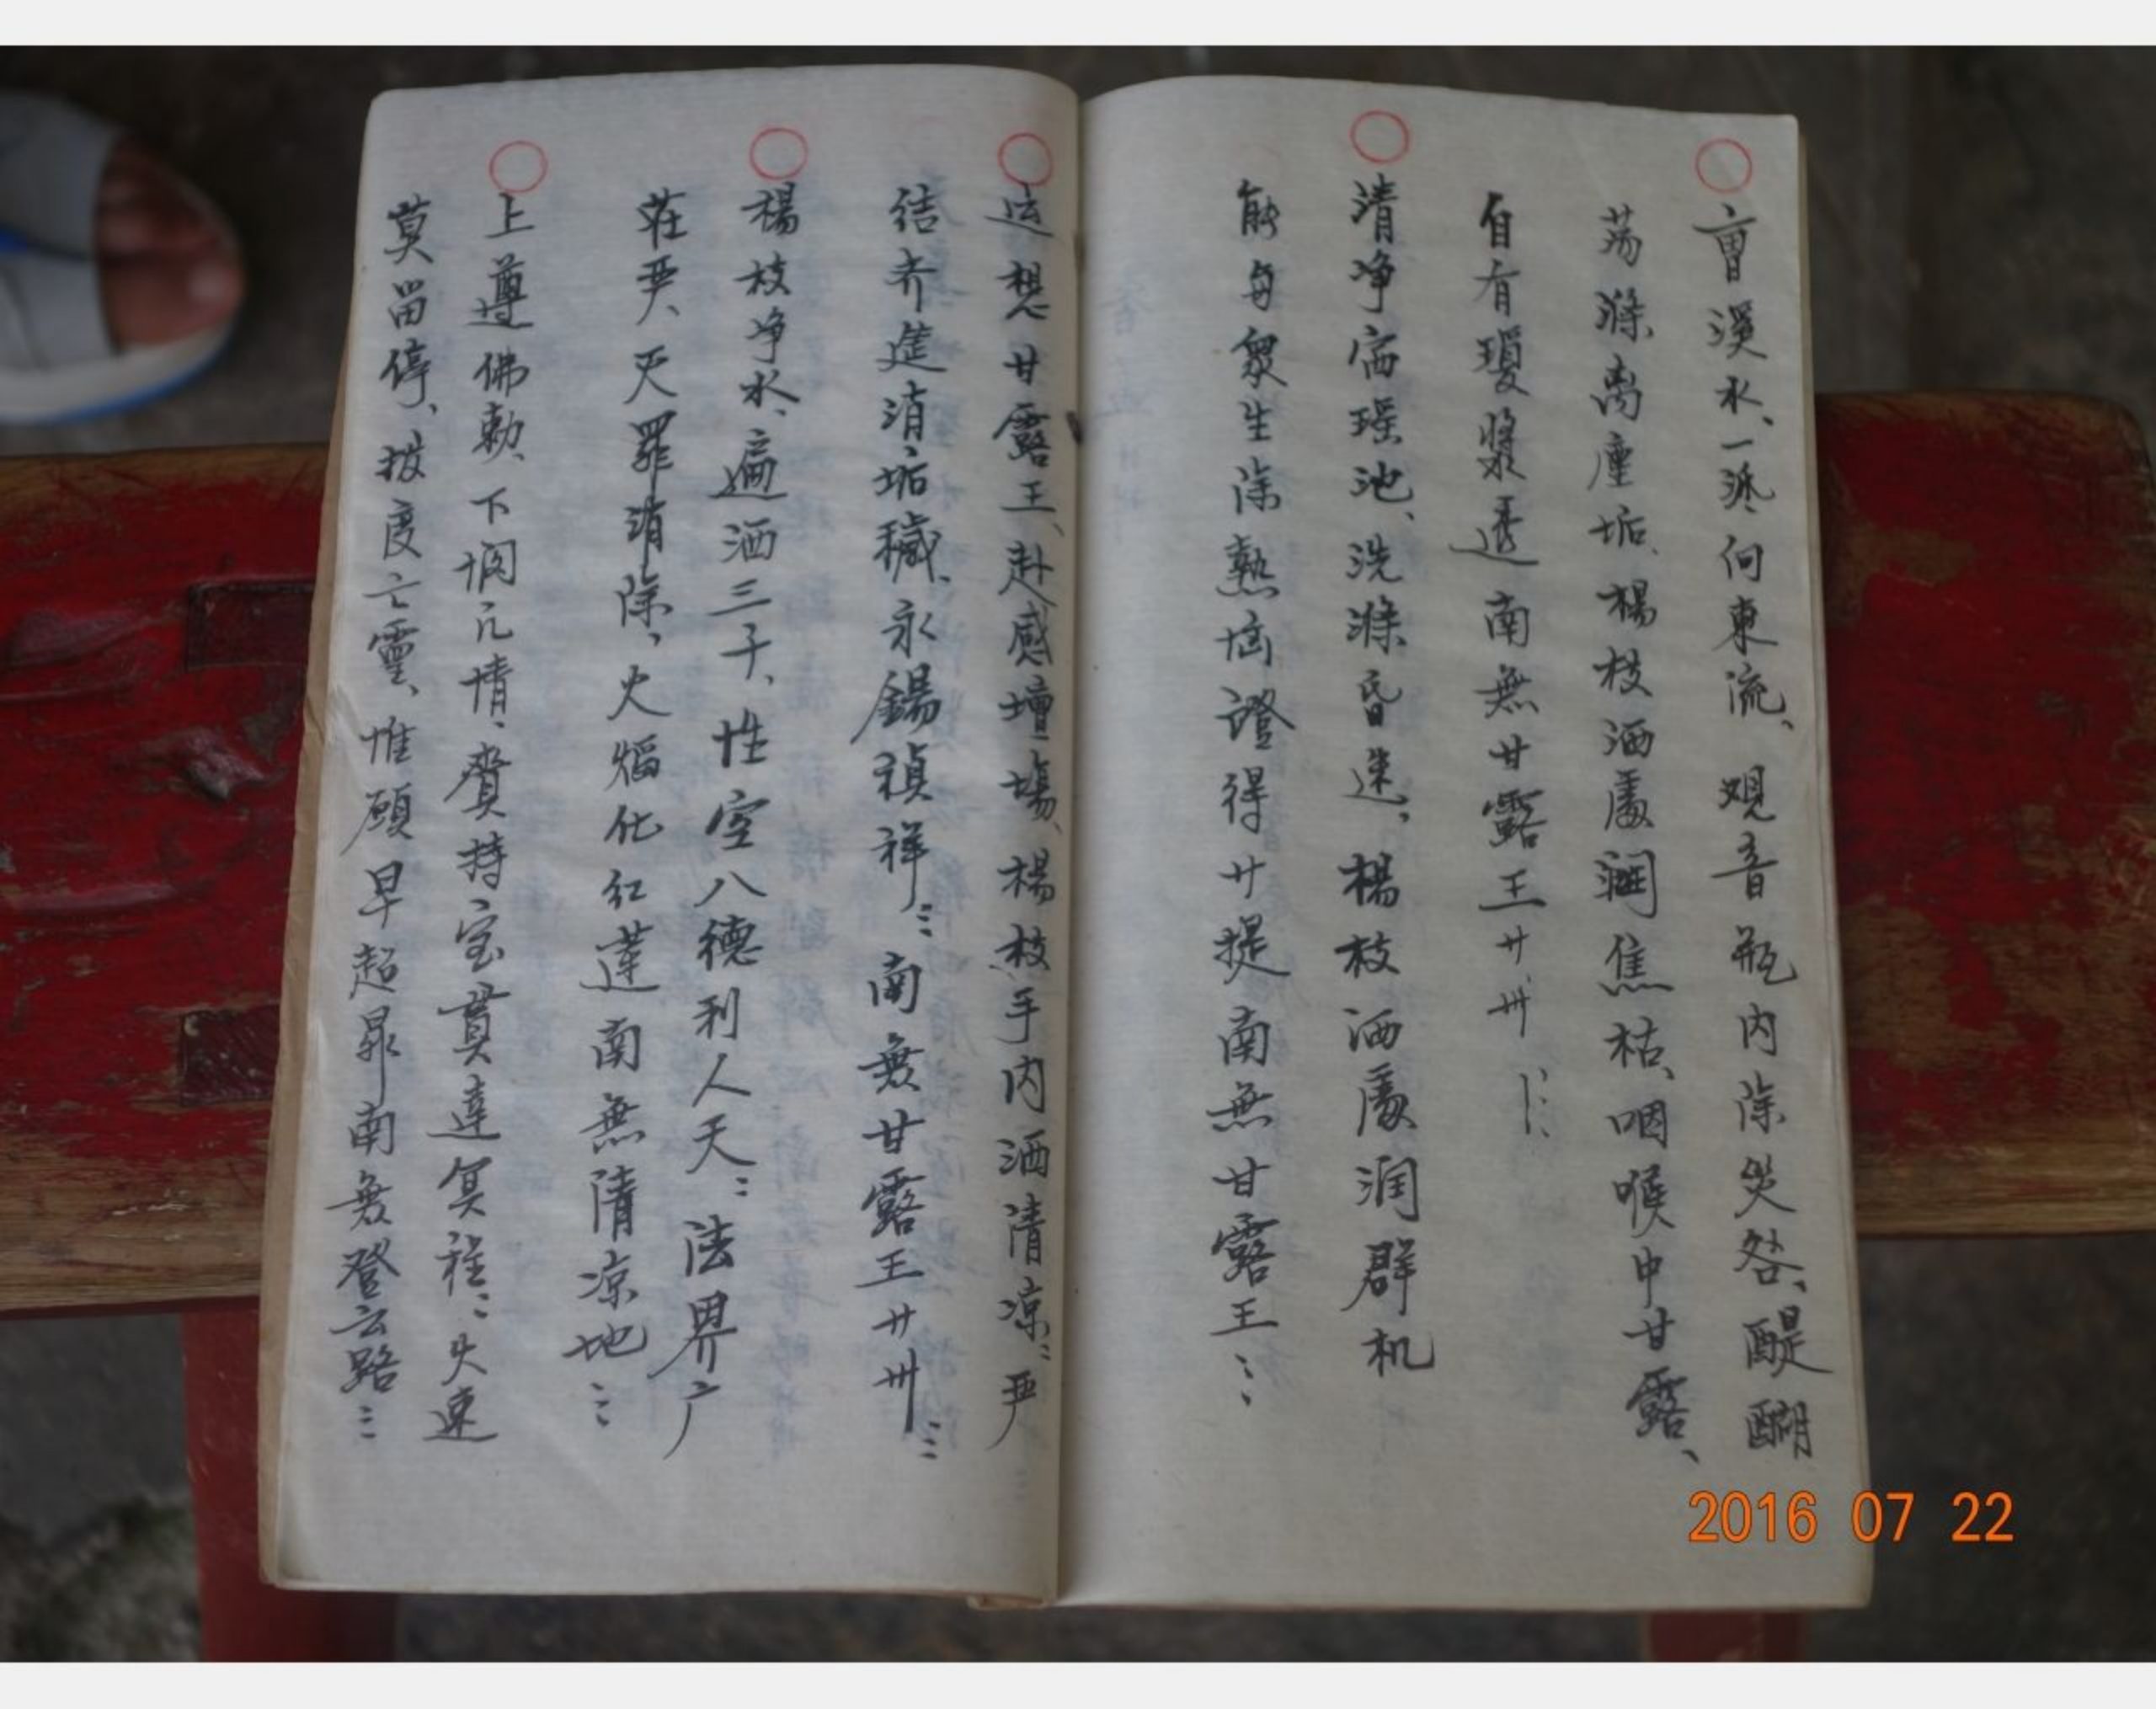 曹溪水、一派向東流、观音瓶内除灾咎、醍醐
荡滌离塵垢、楊枝洒處润焦枯、咽喉中甘露、
自有瓊漿透南無甘露王廾卅
清净宿瑶池、洗滌昏迷、楊枝洒處润群机
能与衆生除熱恼證得廾提南無甘露王
运想甘露王、赴感壇場、楊枝手内洒清凉严
结齐進消垢穢、永錫禎祥南無甘露王廾卅
楊枝净水、遍洒三千、性空八德利人天法界广
莊严、灭罪消除、火熖化红莲南無清凉地
上尊佛勅、下悯亢情、賫持宝貫達冥程火速
莫留停、拔度亡靈、惟願早超昇南無登云路
2016 07 22